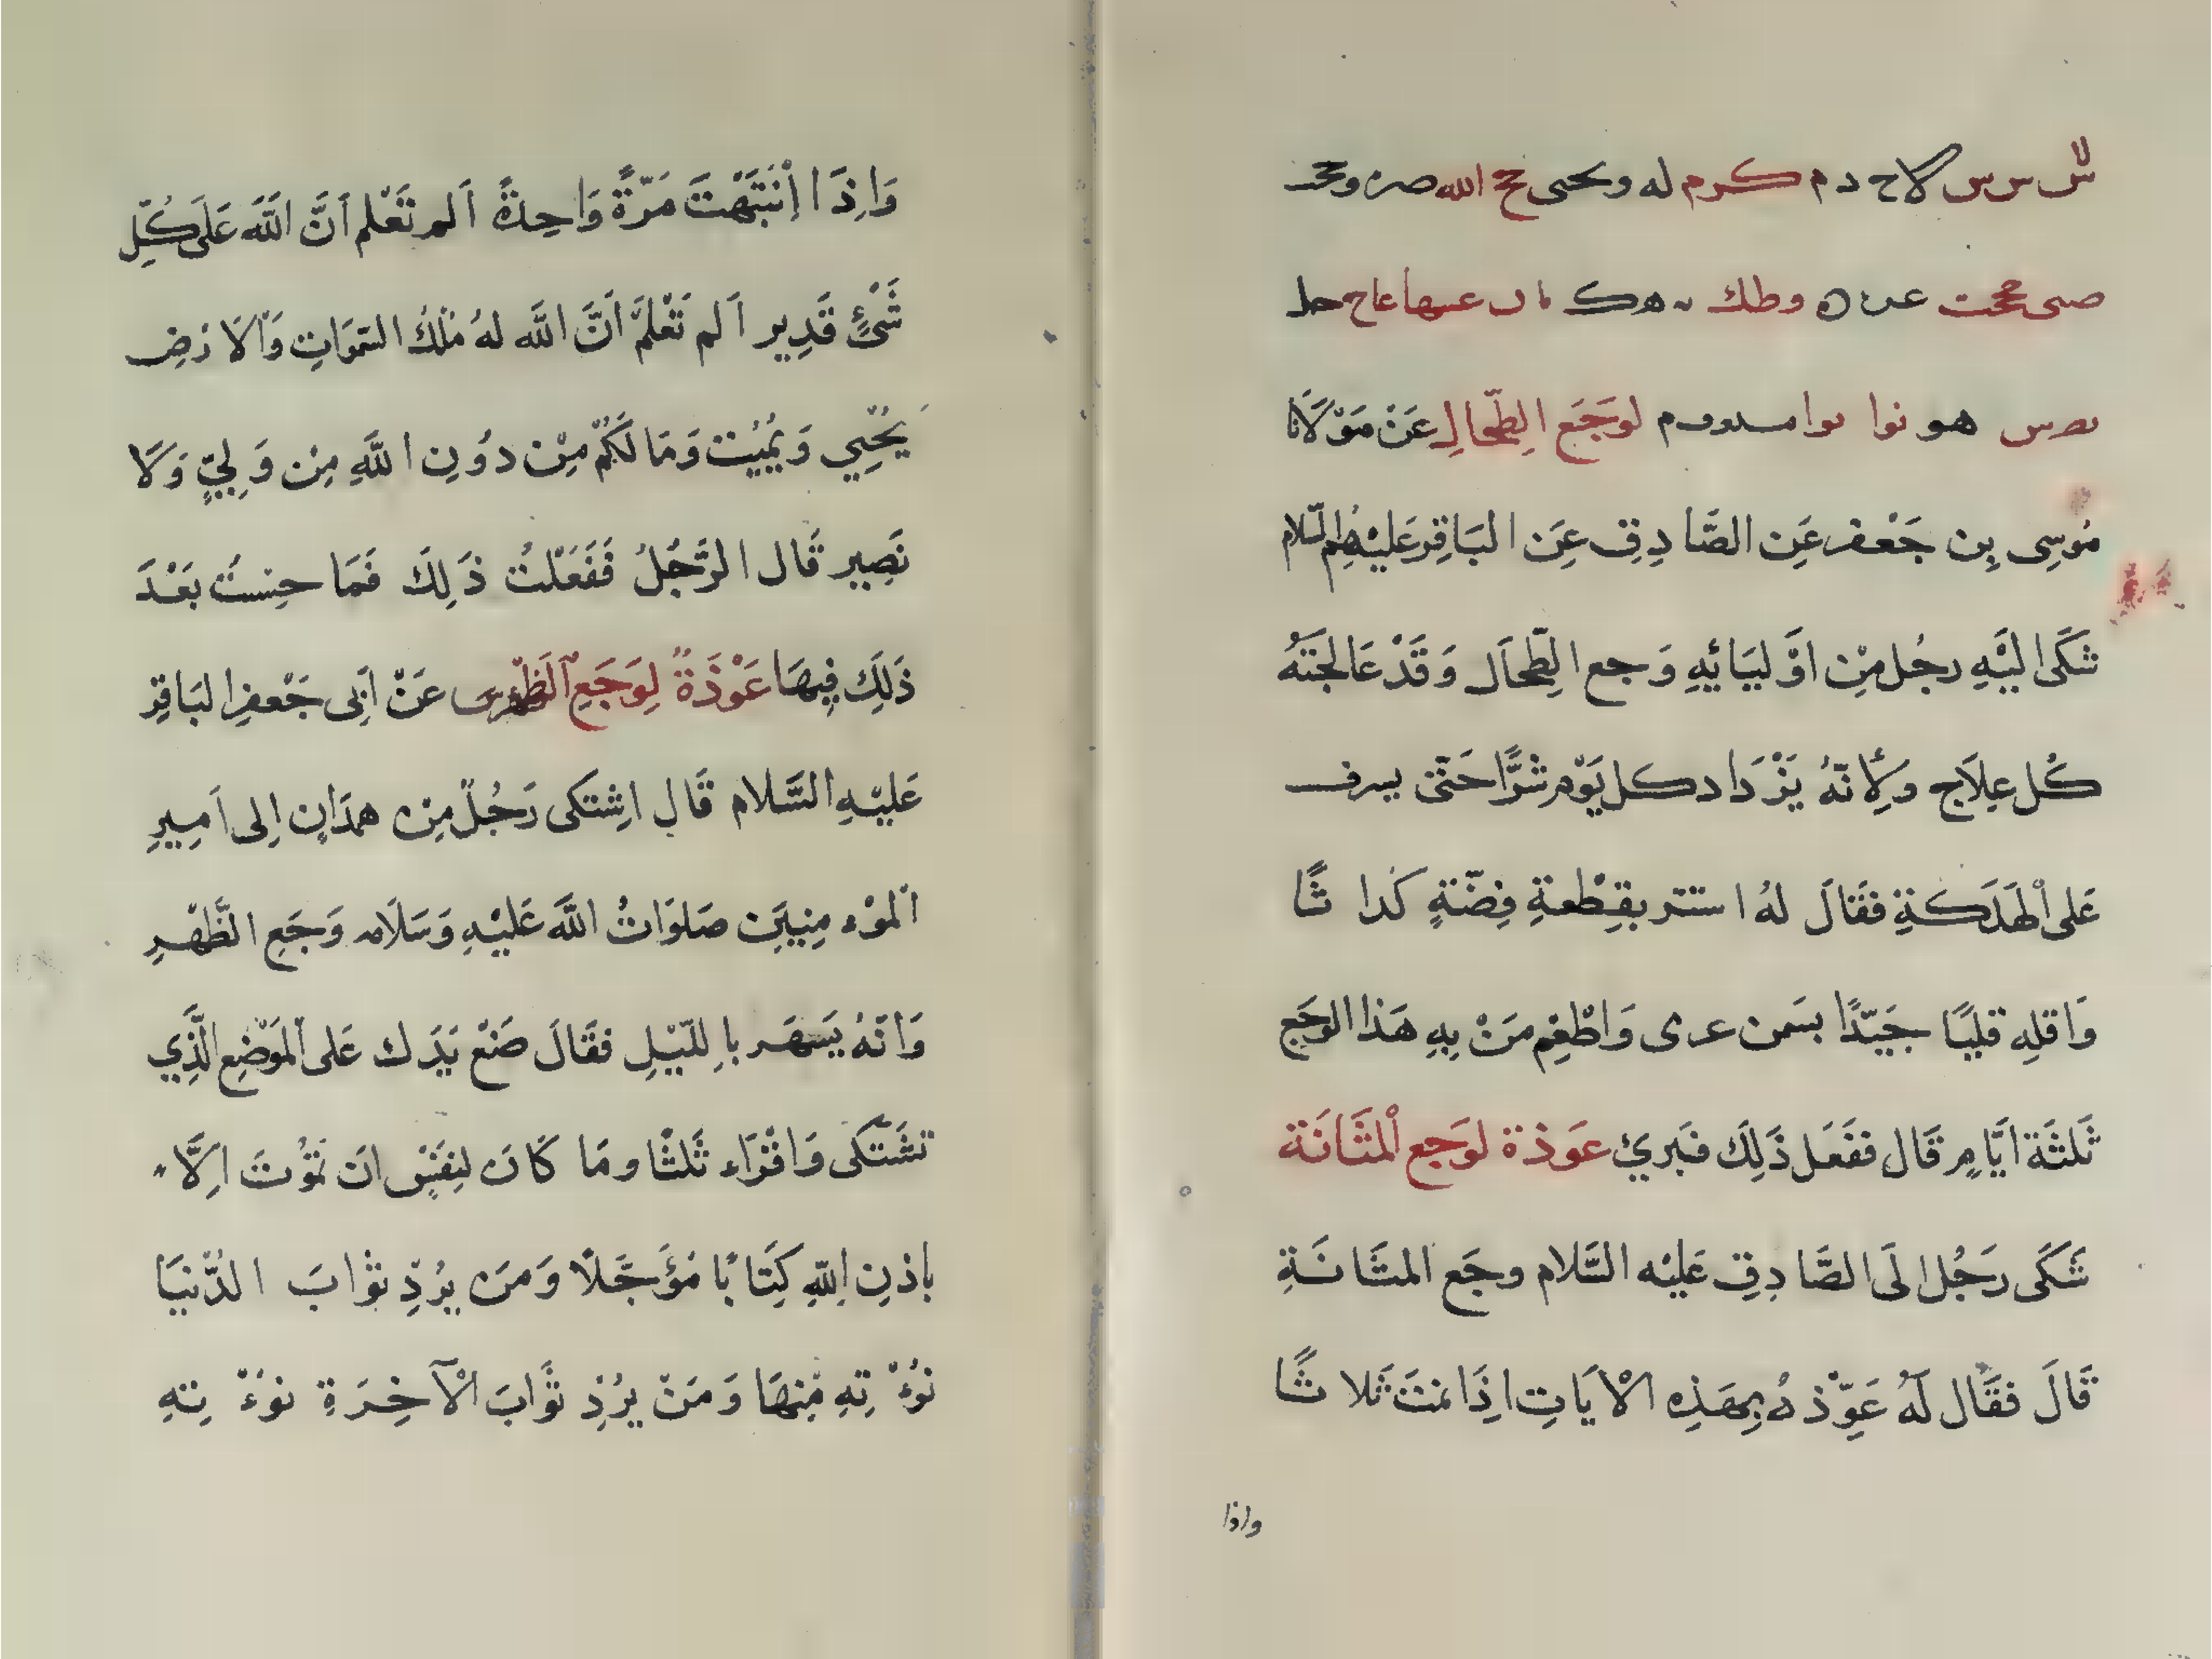 س س س لاح دم كرم له ويحيى حح الله صره ومحمد
صحى محجت وطك هك عسها عاح حط
هو نوا لوَجَعِ الطِّحَالِ عَنْ مَوْلَانَا
مُوسِى بِن جَعْفر عَن الصَّادِقِ عَنِ البَاقِر عَليْهِم السّلام
شَكَى اليَّهِ رجُل مِن اوْليَائِهِ وَجع الطِّحَال وَقَدْ عَالجَتَهُ
كُل عِلَاج وَلِأنّهُ يَزْدَاد كل يَوْم شرًّا حَتّى يسرف
عَلى اْلهَلَكةِ فقَالَ لهُ استتر بقِطْعةِ فِضّةٍ كُدا ثًا
وَاقلِهِ قليًا جَيّدًا بسَمن عرى وَاطْعِم مَنْ بِهِ هَذا الوَجَع
ثَلثَة ايَّامٍ قَال ففَعَل ذَلِكَ فبَرئ عَوذة لوَجَع اْلمثَانَة
شَكَى رَجُل الَى الصَّادِقِ عَليْه السَّلام وجَع المثَانَةِ
قَالَ فقَال لَهُ عَوِّذهُ بِهَذِه الْايَاتِ اِذَا نمتَ ثلاثًا
واذا
وَاِذَا اِنْتَبَهْتَ مَرّةً وَاحِدةً اَلم تَعْلم اَنَّ اللَّهَ عَلَى كُلِّ
شَىْءٍ قَدِير اَلم تَعْلَم اَنَّ اللَّه لهُ مُلْكُ السّمَوَاتِ وَالْارْضِ
يُحْيِي وَيُمِيْت وَمَا لَكُمْ مِنْ دُونِ اللَّهِ مِن وَلِيٍّ وَلَا
نَصِير قَال الرَّجُلُ فَفَعَلْتُ ذَلِكَ فَمَا حِسْتُ بَعْدَ
ذَلَكَ فِيهَا عَوْذَةً لِوَجَعِ الَظّهر عَنْ اَبِى جَعْفرِ البَاقِرِ
عَليْهِ السَّلام قَال اشِتكَى رَجُلٌ مِن همدَان اِلى اَمِيرِ
اْلموْءمِنِيِنَ صَلوَاتُ اللَّه عَليْهِ وَسَلَامه وَجَعِ الظَّهْرِ
وَانّهُ يَسهَر باِللّيْلِ فقَالَ ضَعْ يَدَك عَلى اْلمَوْضِعِ الّذِي
تشَتَكَى وَاقْرَاء ثَلثًا ومَا كَانَ لِنفَسٍ انَ تمُوْتَ اِلَّا
باِذنِ اللّهِ كِتَابًا مُؤَجَّلًا وَمَن يُرِدْ ثوَابَ الدُّنيَا
نوُءْتِهِ مِنهَا وَمَنْ يرُدِ ثوَابَ الْآخِرَةِ نوُءْتِهِ